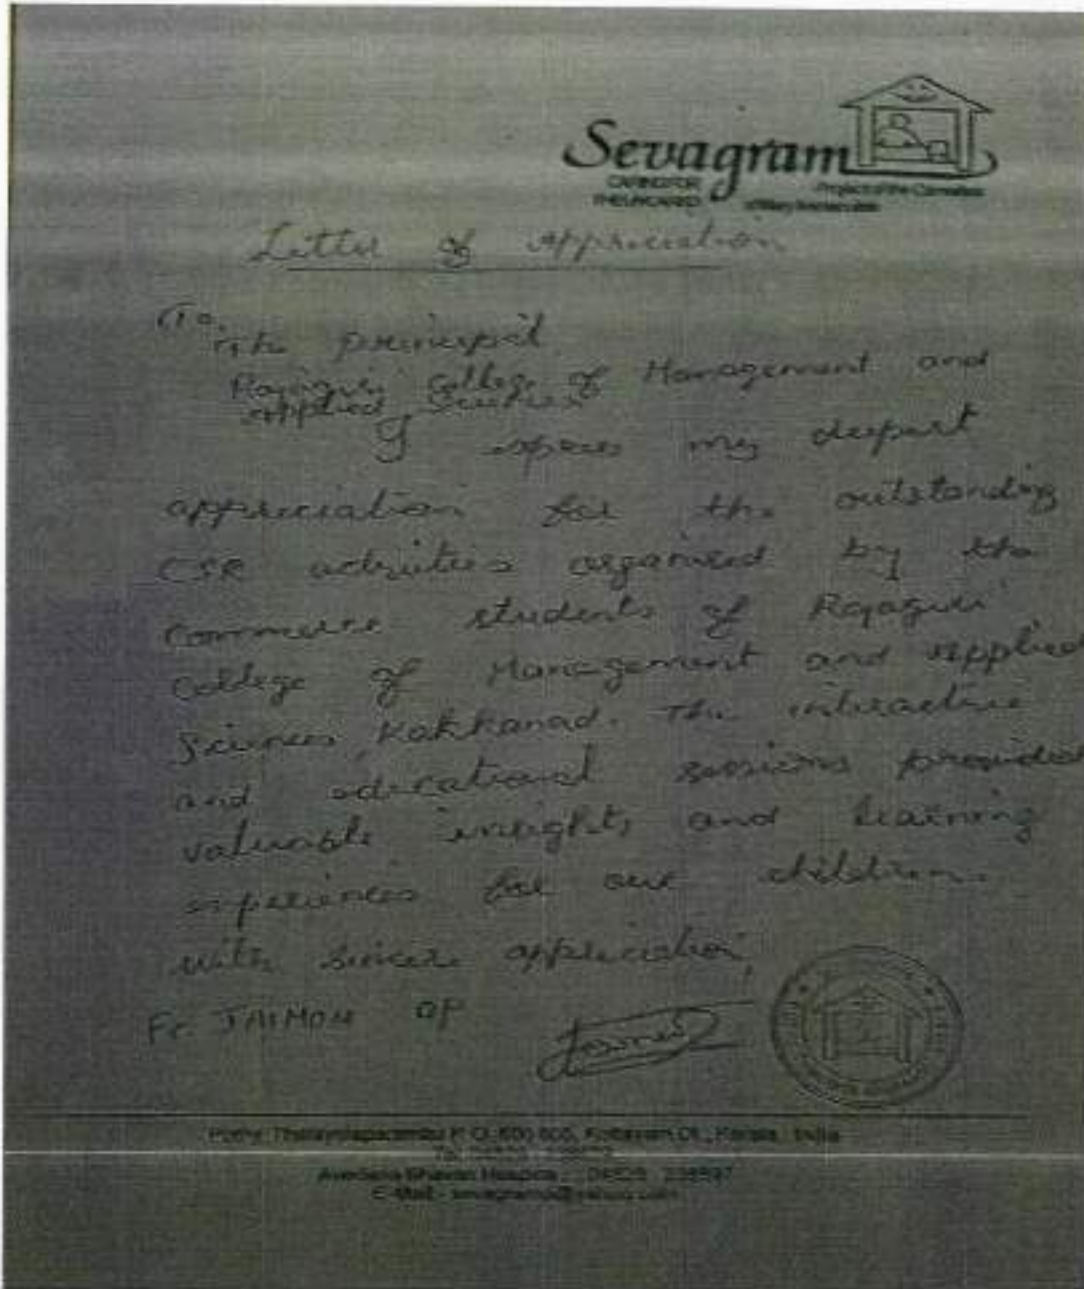 Sevagram
CARING FOR
THE UNCARED
Letter of Appreciation
To,
The principal
Rajagiri College of Management and
Applied Sciences
I express my deepest
appreciation for the outstanding
CSR activities organised by the
commerce students of Rajagiri
College of Management and Applied
Sciences, Kakkanad. The interactive
and educational sessions provided
valuable insights and learning
experiences for our children.
with sincere appreciation,
Fr. JAIMON OP
Thalayolaparambu P.O. Kottayam Dt., Kerala, India
Avedana Bhavan Hospice
E-Mail: